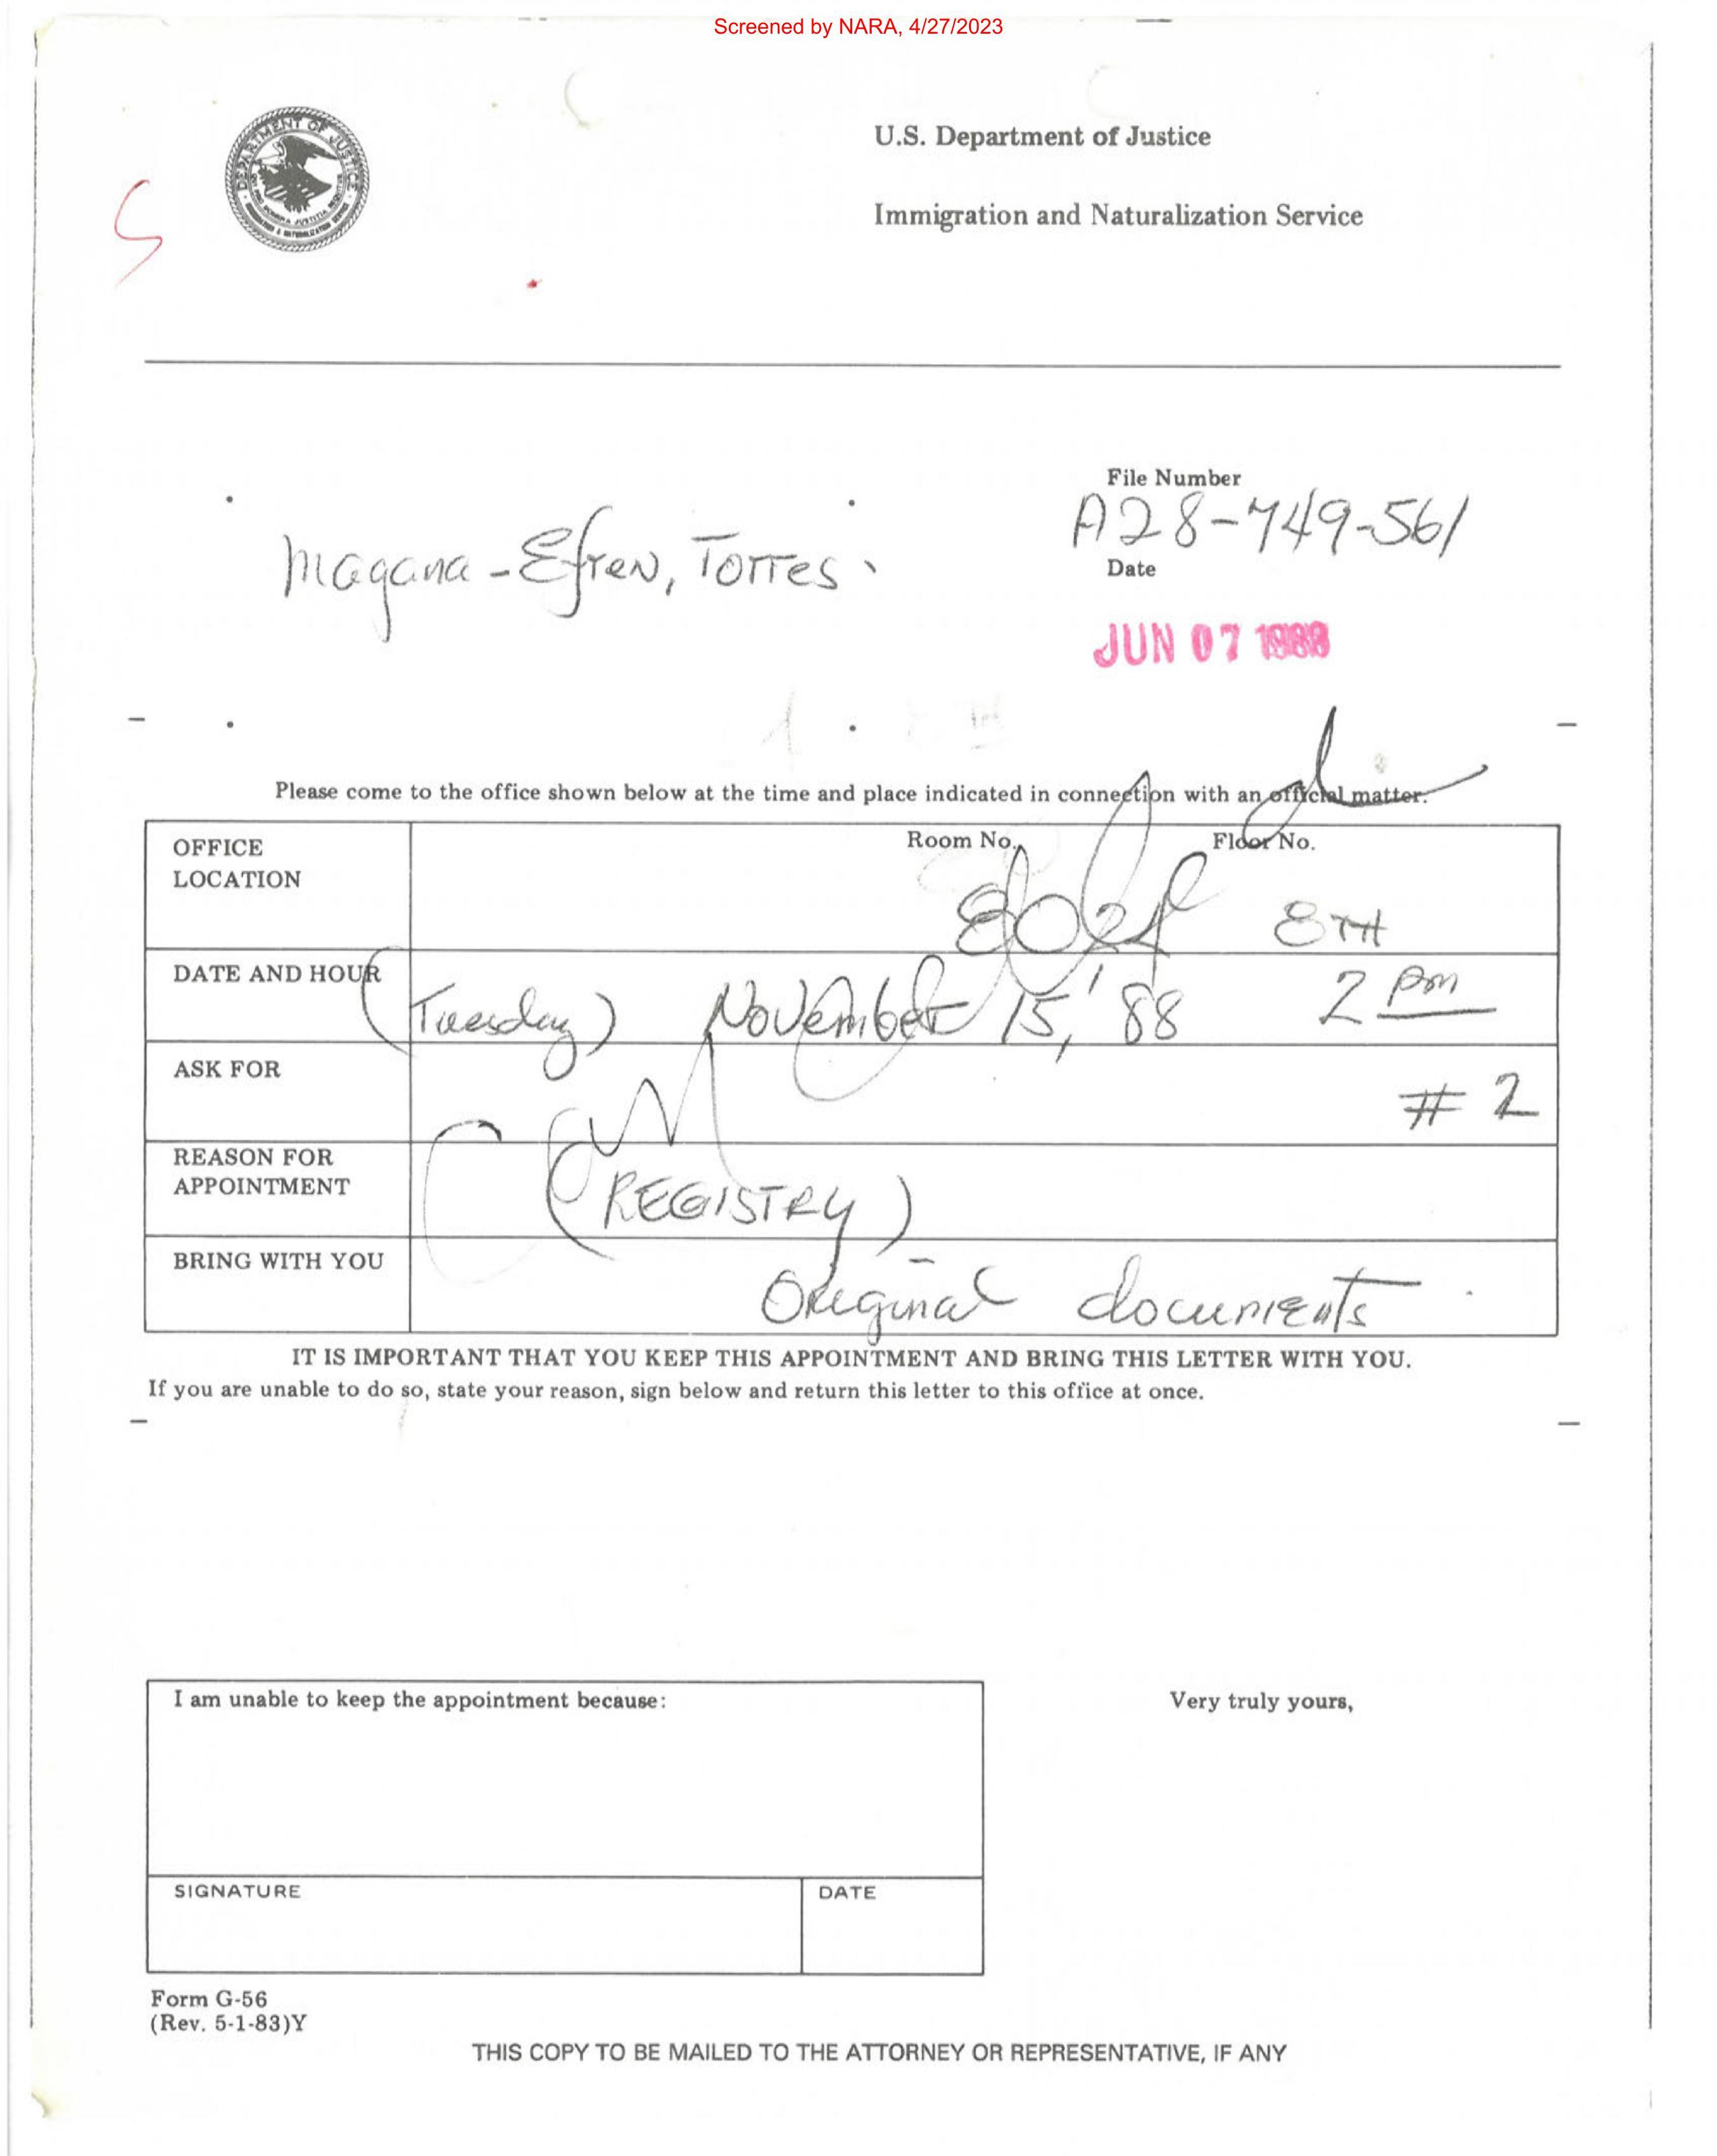 Screened by NARA, 4/27/2023
DEPARTMENT OF JUSTICE
U.S. Department of Justice
Immigration and Naturalization Service
File Number
A28-749-561
Magana - Efren, Torres
Date
JUN 07 1988
Please come to the office shown below at the time and place indicated in connection with an official matter.
OFFICE LOCATION
Room No.
Floor No.
8TH
DATE AND HOUR
(Tuesday) November 15, '88 2 pm
ASK FOR
# 2
REASON FOR APPOINTMENT
(REGISTRY)
BRING WITH YOU
Original documents
IT IS IMPORTANT THAT YOU KEEP THIS APPOINTMENT AND BRING THIS LETTER WITH YOU.
If you are unable to do so, state your reason, sign below and return this letter to this office at once.
I am unable to keep the appointment because:
Very truly yours,
SIGNATURE
DATE
Form G-56
(Rev. 5-1-83)Y
THIS COPY TO BE MAILED TO THE ATTORNEY OR REPRESENTATIVE, IF ANY